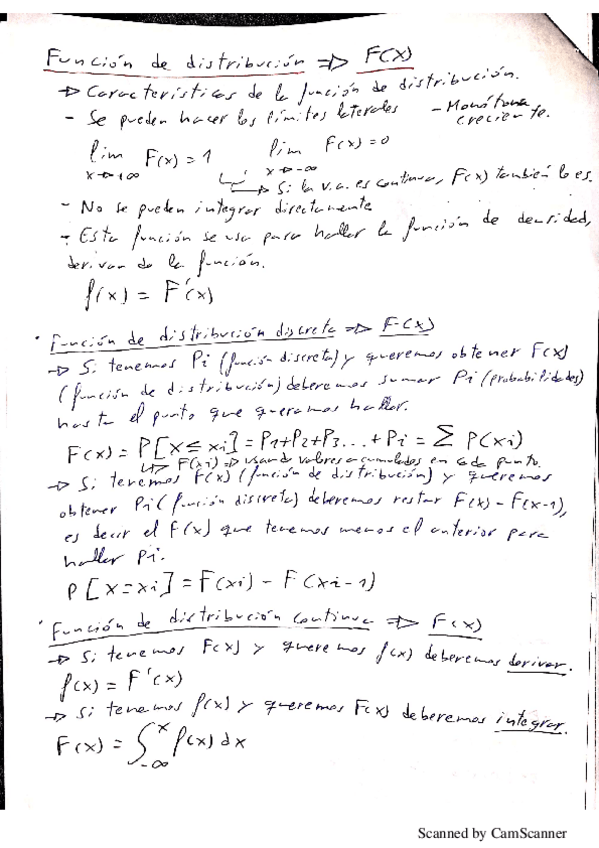 Función de distribución ⇒ F(x)
→ Características de la función de distribución.
- Se pueden hacer los límites laterales - Monótona creciente.
lim F(x) = 1 lim F(x) = 0
x→+∞ x→-∞
↳ Si la v.a. es continua, F(x) también lo es.
- No se pueden integrar directamente
- Esta función se usa para hallar la función de densidad,
derivando la función.
f(x) = F'(x)
· Función de distribución discreta ⇒ F(x)
→ Si tenemos Pi (función discreta) y queremos obtener F(x)
(función de distribución) deberemos sumar Pi (probabilidades)
hasta el punto que queramos hallar.
F(x) = P[X ≤ xi] = P1+P2+P3...+Pi = Σ P(xi)
↳ F(xi) ⇒ usando valores acumulados en cada punto.
→ Si tenemos F(x) (función de distribución) y queremos
obtener Pi (función discreta) deberemos restar F(x) - F(x-1),
es decir el F(x) que tenemos menos el anterior para
hallar Pi.
P[X=xi] = F(xi) - F(xi-1)
· Función de distribución continua ⇒ F(x)
→ Si tenemos F(x) y queremos f(x) deberemos derivar.
f(x) = F'(x)
→ Si tenemos f(x) y queremos F(x) deberemos integrar.
F(x) = ∫_{-∞}^{x} f(x) dx
Scanned by CamScanner